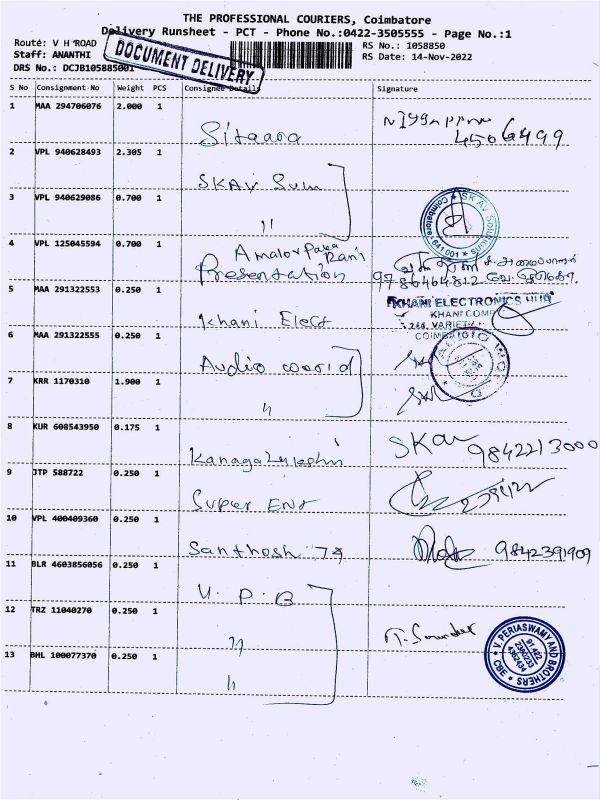 THE PROFESSIONAL COURIERS, Coimbatore
Delivery Runsheet - PCT - Phone No.:0422-3505555 - Page No.:1
Route: V H ROAD
RS No.: 1058850
Staff: ANANTHI
RS Date: 14-Nov-2022
DRS No.: DCJB105885001
DOCUMENT DELIVERY
S No Consignment No Weight PCS Consignee Details Signature
1 MAA 294706076 2.000 1
Sitaara 4506499
2 VPL 940628493 2.305 1
SKAV Sum
3 VPL 940629086 0.700 1
"
SK AV Solutions Coimbatore 641 001
4 VPL 125045594 0.700 1
Amalor Pava Rani
Presentation 9786464812
5 MAA 291322553 0.250 1
Khani Elect
KHANI ELECTRONICS
KHANI COMP
244, VARIETY
COIMBATORE
6 MAA 291322555 0.250 1
Audio world
7 KRR 1170310 1.900 1
"
8 KUR 608543950 0.175 1
Kanagalakshmi 9842213000
9 JTP 588722 0.250 1
Super Ent
10 VPL 400409360 0.250 1
Santhosh 9842391909
11 BLR 4603856056 0.250 1
V. P. B
12 TRZ 11040270 0.250 1
"
T. Sounder
V. PERIASWAMY AND BROTHERS CBE
13 BHL 100077370 0.250 1
"